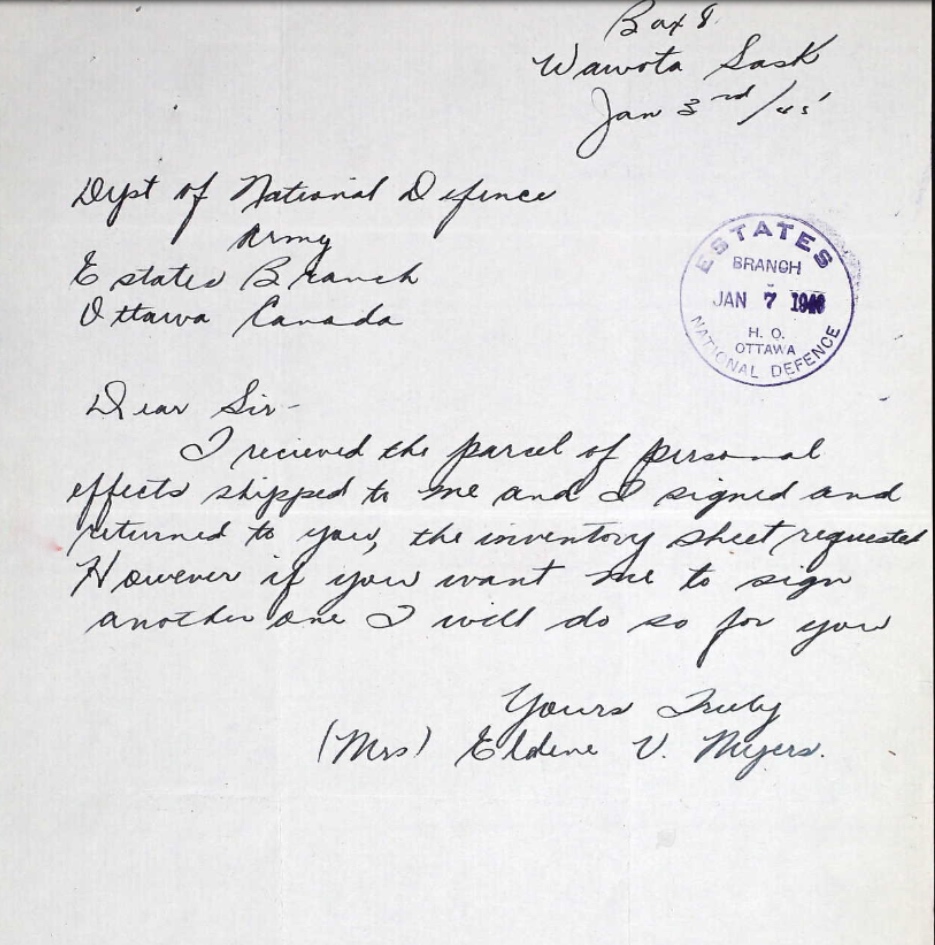 Box 8
Wawota Sask
Jan 3rd/45'
Dept of National Defence
Army
Estates Branch
Ottawa Canada
ESTATES
BRANCH
JAN 7 1946
H. Q.
OTTAWA
NATIONAL DEFENCE
Dear Sir -
I recieved the parcel of personal
effects shipped to me and I signed and
returned to you, the inventory sheet requested
However if you want me to sign
another one I will do so for you
Yours Truly
(Mrs) Eldene V. Myers.